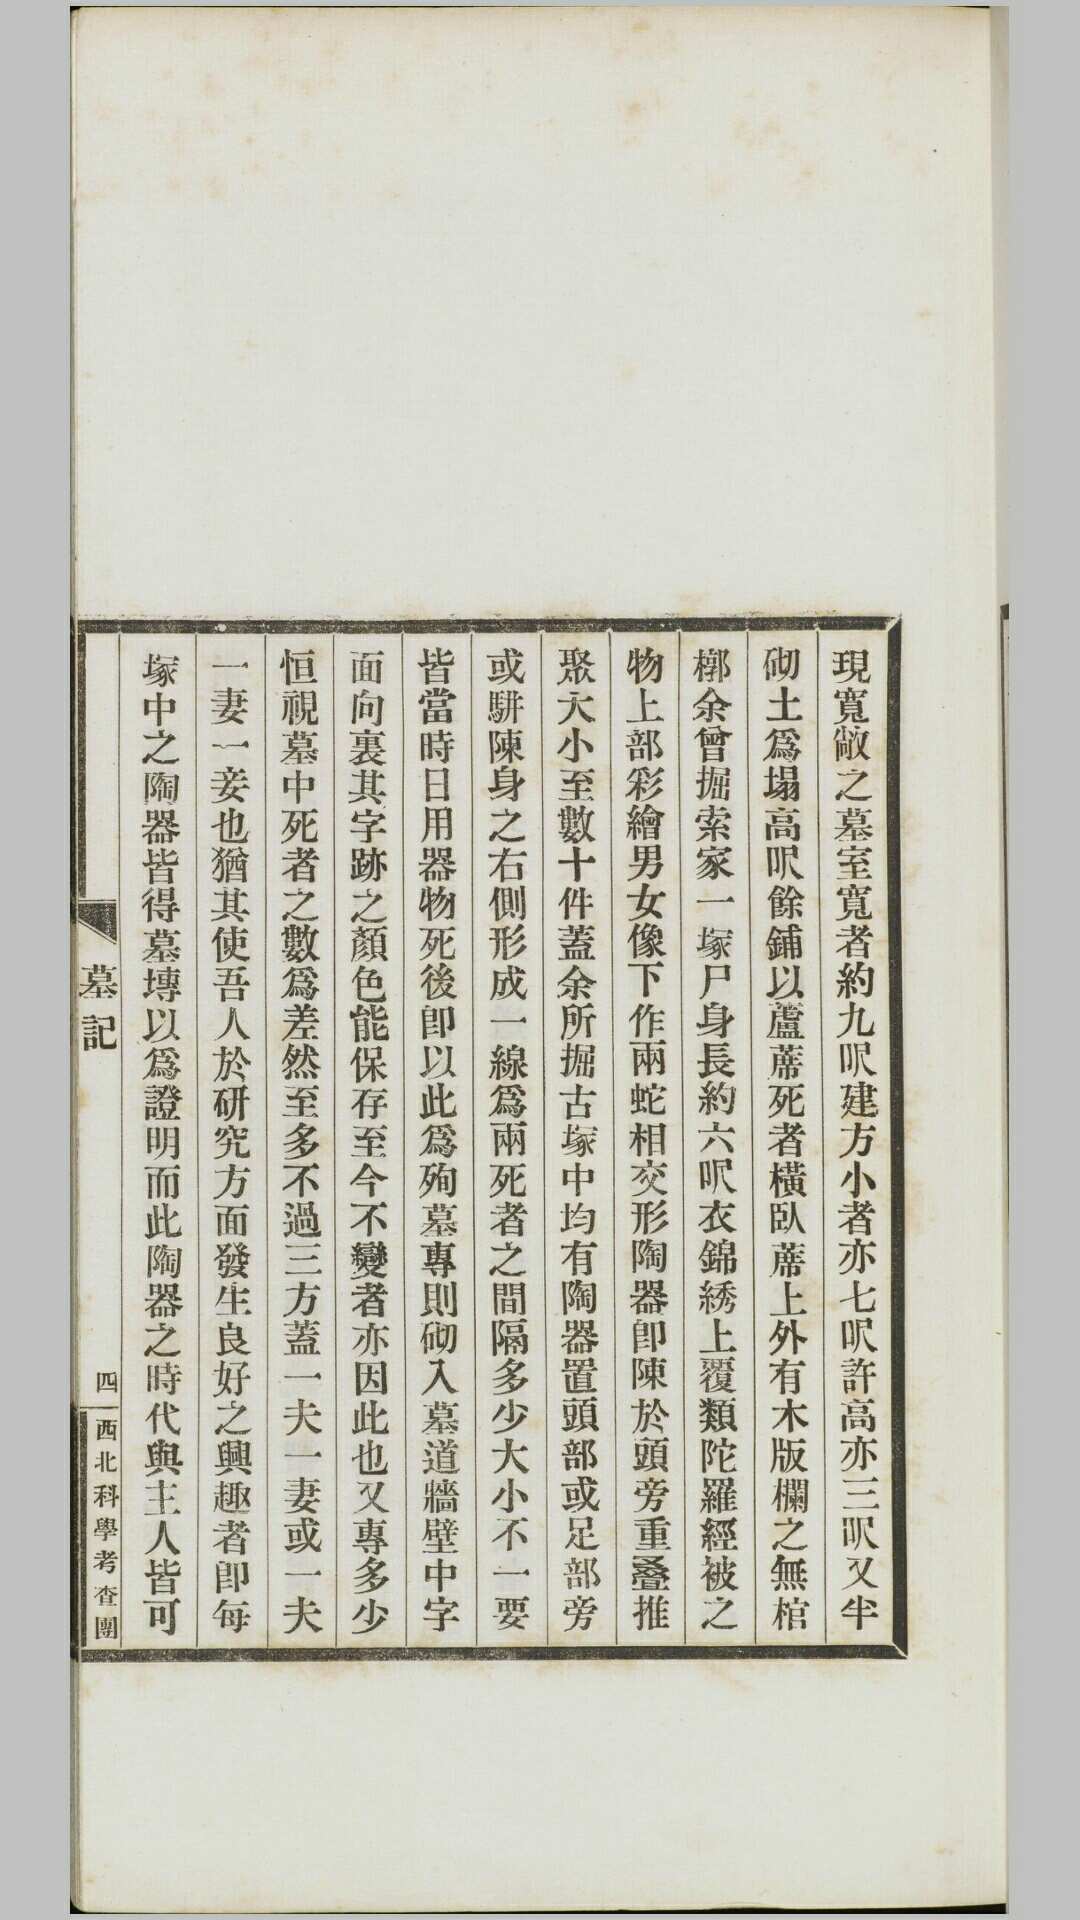 現寬敞之墓室寬者約九呎建方小者亦七呎許高亦三呎又半
砌土爲塌高呎餘鋪以蘆蓆死者橫臥蓆上外有木版欄之無棺
槨余曾掘索家一塚尸身長約六呎衣錦綉上覆類陀羅經被之
物上部彩繪男女像下作兩蛇相交形陶器卽陳於頭旁重叠推
聚大小至數十件蓋余所掘古塚中均有陶器置頭部或足部旁
或駢陳身之右側形成一線爲兩死者之間隔多少大小不一要
皆當時日用器物死後卽以此爲殉墓專則砌入墓道牆壁中字
面向裏其字跡之顏色能保存至今不變者亦因此也又專多少
恒視墓中死者之數爲差然至多不過三方蓋一夫一妻或一夫
一妻一妾也猶其使吾人於研究方面發生良好之興趣者卽每
塚中之陶器皆得墓塼以爲證明而此陶器之時代與主人皆可
墓記
四
西北科學考查團